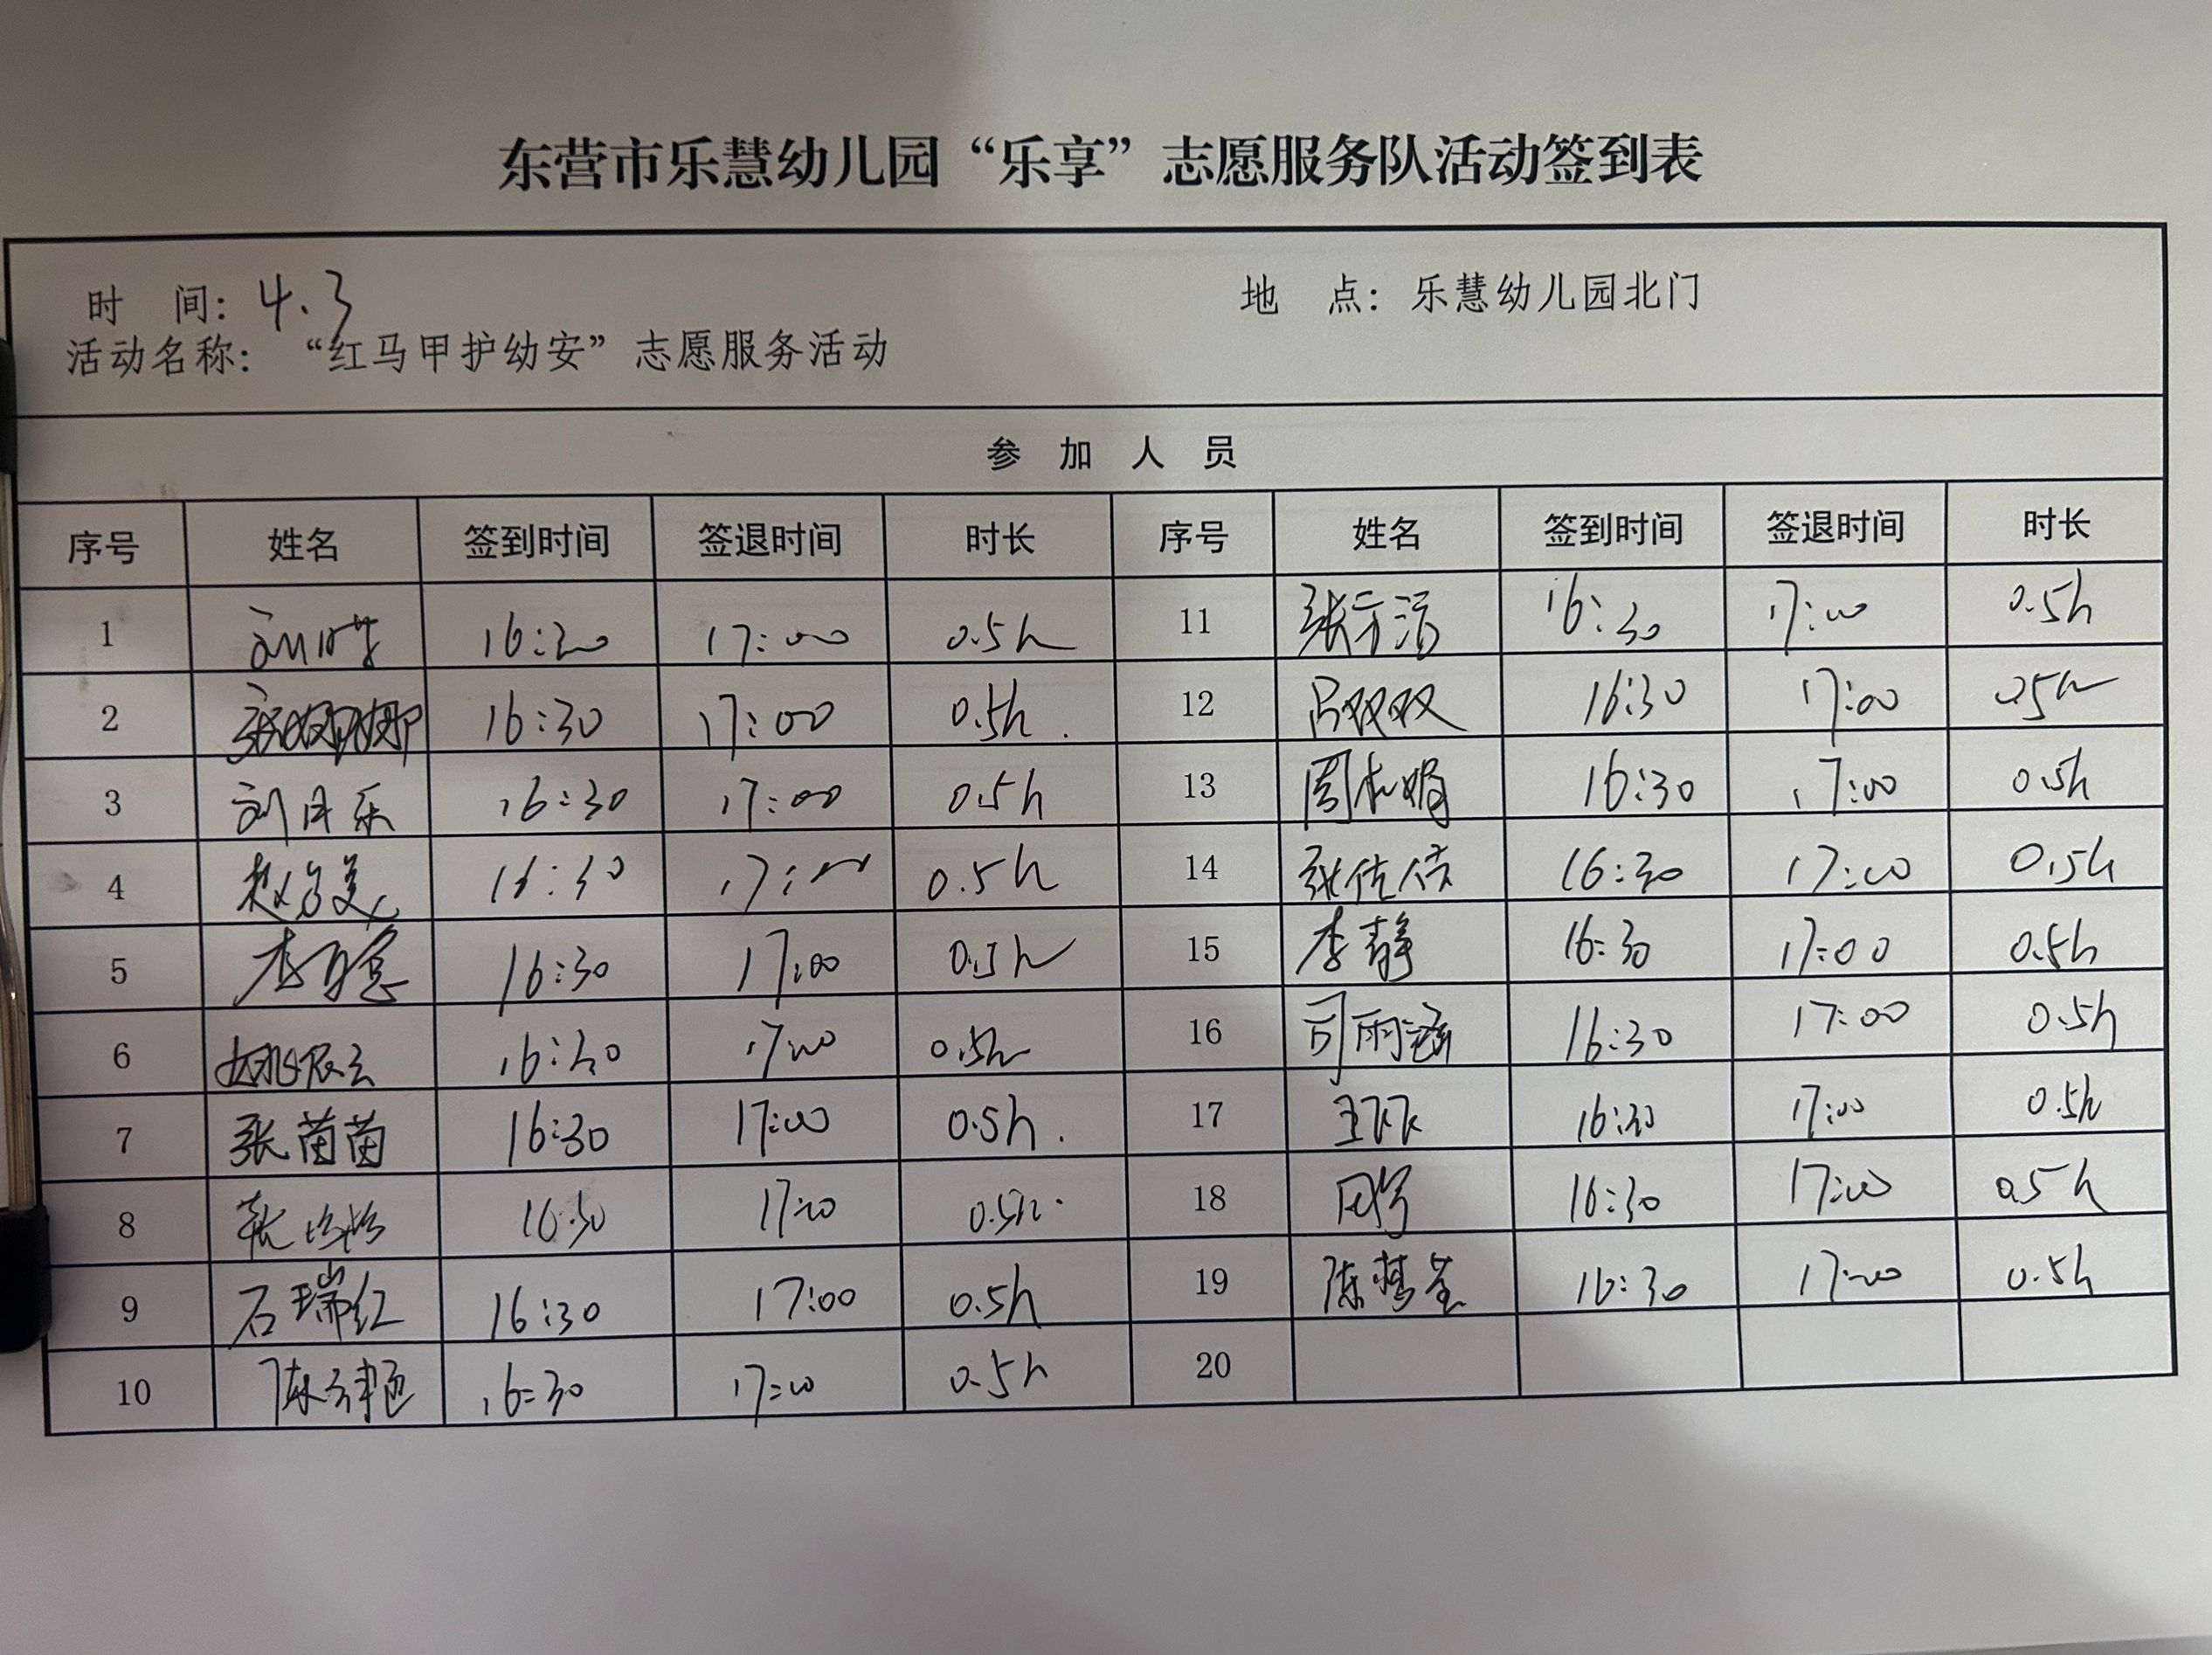 东营市乐慧幼儿园“乐享”志愿服务队活动签到表
时 间：4.3 地 点：乐慧幼儿园北门
活动名称：“红马甲护幼安”志愿服务活动
参 加 人 员
序号 姓名 签到时间 签退时间 时长 序号 姓名 签到时间 签退时间 时长
1 16:30 17:00 0.5h 11 16:30 17:00 0.5h
2 张娜娜 16:30 17:00 0.5h. 12 吕双双 16:30 17:00 0.5h
3 刘月乐 16:30 17:00 0.5h 13 16:30 17:00 0.5h
4 16:30 17:00 0.5h 14 16:30 17:00 0.5h
5 16:30 17:00 0.5h 15 李静 16:30 17:00 0.5h
6 16:30 17:00 0.5h 16 司雨涵 16:30 17:00 0.5h
7 张苗苗 16:30 17:00 0.5h. 17 16:30 17:00 0.5h
8 16:30 17:00 0.5h. 18 16:30 17:00 0.5h
9 石瑞红 16:30 17:00 0.5h 19 16:30 17:00 0.5h
10 16:30 17:00 0.5h 20